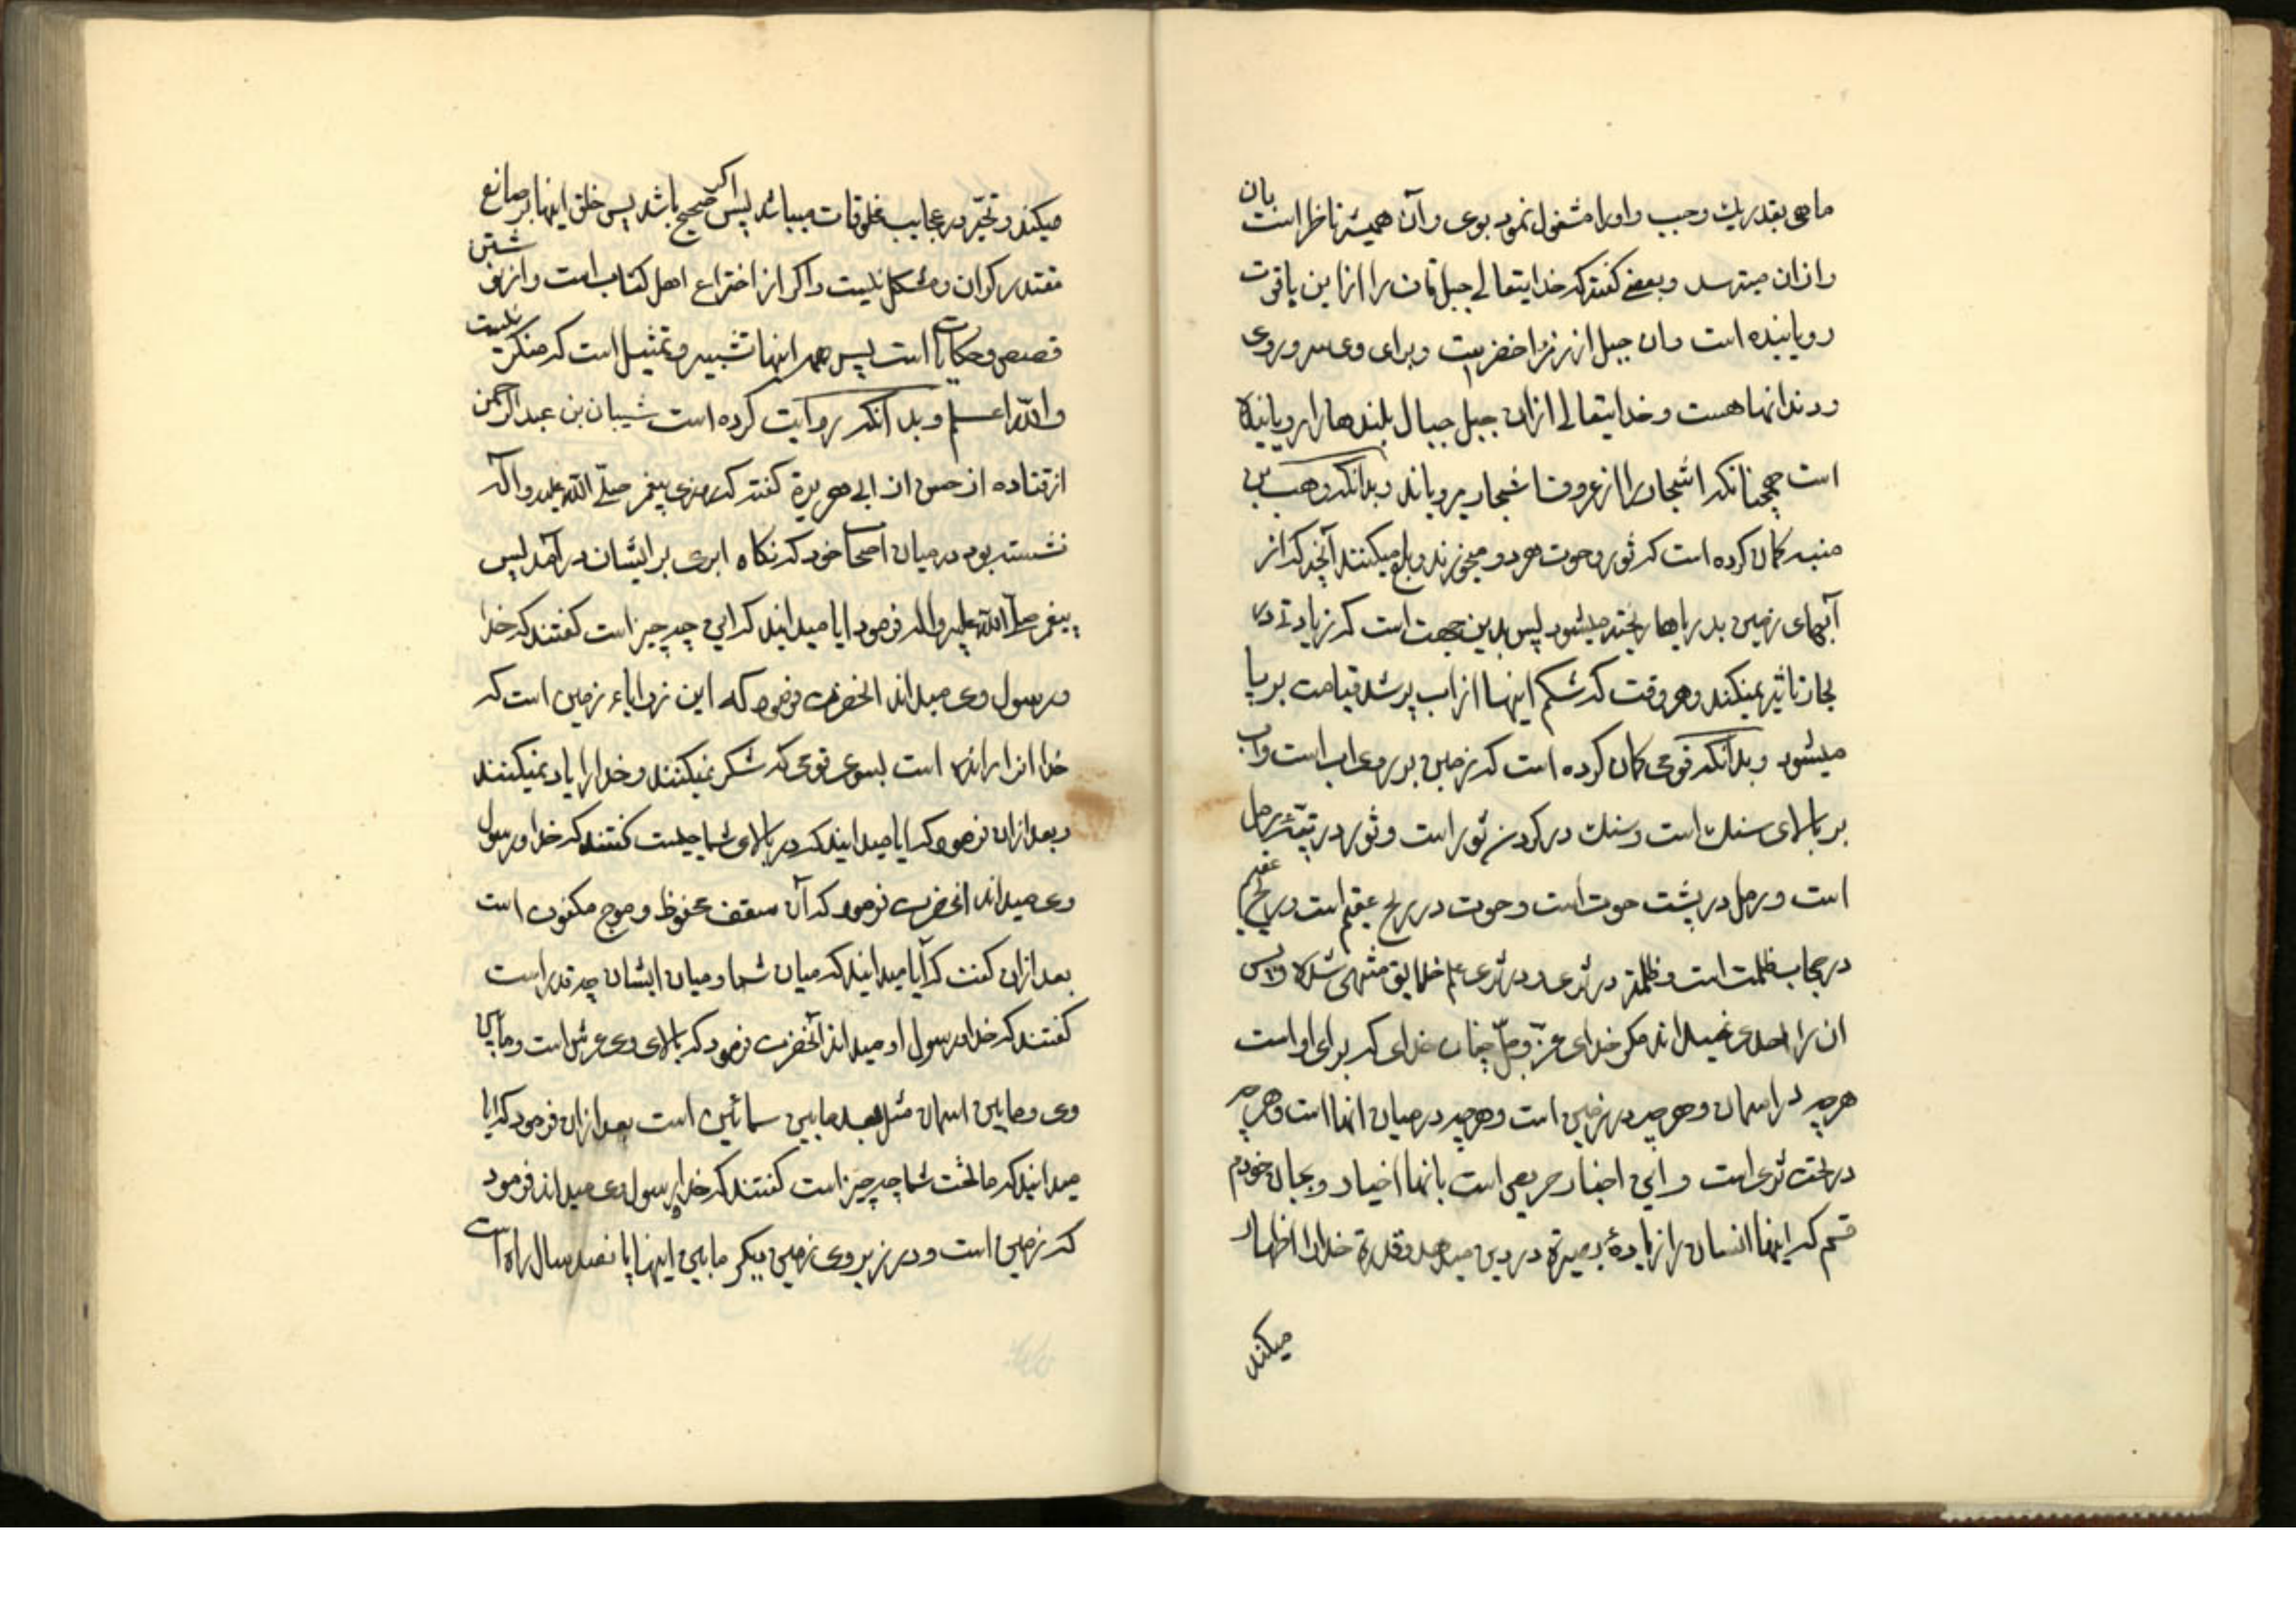 ماهی بقدر یک وجب و او را مشغول نمود بوی و آن همیشه ناظر است بآن
و از ان میترسد و بعضی گفته که خدایتعالی جبل قاف را از این یاقوت
رویانیده است و ان جبل از زمرد اخضر است و برای وی سر و روی
و دندانها هست و خدایتعالی ازان جبل جبال بلندها را رویانیده
است همچنانکه اشجار را از عروق اشجار میرویاند و بدانکه وهب بن
منبه کمان کرده است که ثور و حوت هر دو میخورند و بلع میکنند آنچه که از
آبهای زمین بدریاها ریخته میشود پس بدین جهت است که زیادتی در
بحار تاثیر نمیکند و هر وقت که شکم اینها از اب پر شد قیامت بر پا
میشود و بدانکه قومی کمان کرده است که زمین بر روی اب است و آب
بر بالای سنک است و سنک در کردن ثور است و ثور در رمل
است و رمل در پشت حوت است و حوت در ریح عقیم است و ریح عقیم
در حجاب ظلمت است و ظلمة در ثری و در ثری علم خلایق منتهی شده و پس
ان را احدی نمیداند مکر خدای عز و جل چنان خدای که برای او است
هر چه در اسمان و هر چه در زمین است و هر چه در میان انها است و هر چه
در تحت ثری است و این اخبار حریص است بانها اخیار و بجان خودم
قسم که اینها انسان را زیادهٔ بصیرة در دین میدهد و قدرة خدا را اظهار
میکند
میکند و تحیّر در عجایب مخلوقات میباشد پس اکر صحیح باشد پس خلق اینها بر صانع
مقتدر کران و مشکل نیست و اکر از اختراع اهل کتاب است و از
قصص و حکایات است پس همه اینها تشبیه و تمثیل است که منکر نیست
والله اعلم و بدانکه روایت کرده است شیبان بن عبد الرحمن
از قتاده از حسن از ابی هریرة گفته که روزی پیغمبر صلّی الله علیه و آله
نشسته بود در میان اصحاب خود که نکاه ابری بر ایشان در آمد پس
پیغمبر صلّی الله علیه و اله فرمود ایا میدانید که این چه چیز است گفتند که خدا
و رسول وی میداند انحضرت فرمود که این زوایاء زمین است که
خدا انرا رانده است بسوی قومی که شکر نمیکنند و خدا را یاد نمیکنند
و بعد ازان فرمود که ایا میدانید که در بالای شما چیست گفتند که خدا و رسول
وی میداند انحضرت فرمود که آن سقف محفوظ و موج مکفوف است
بعد ازان گفت که آیا میدانید که میان شما و میان ایشان چه قدر است
گفتند که خدا و رسول او میداند آنحضرت فرمود که بالای وی عرش است و مابین
وی و مابین اسمان مثل بعد مابین سمائین است بعد ازان فرمود که ایا
میدانید که ما تحت شما چه چیز است گفتند که خدا و رسول وی میداند فرمود
که زمین است و در زیر وی زمین دیکر مابین اینها پانصد سال راه است